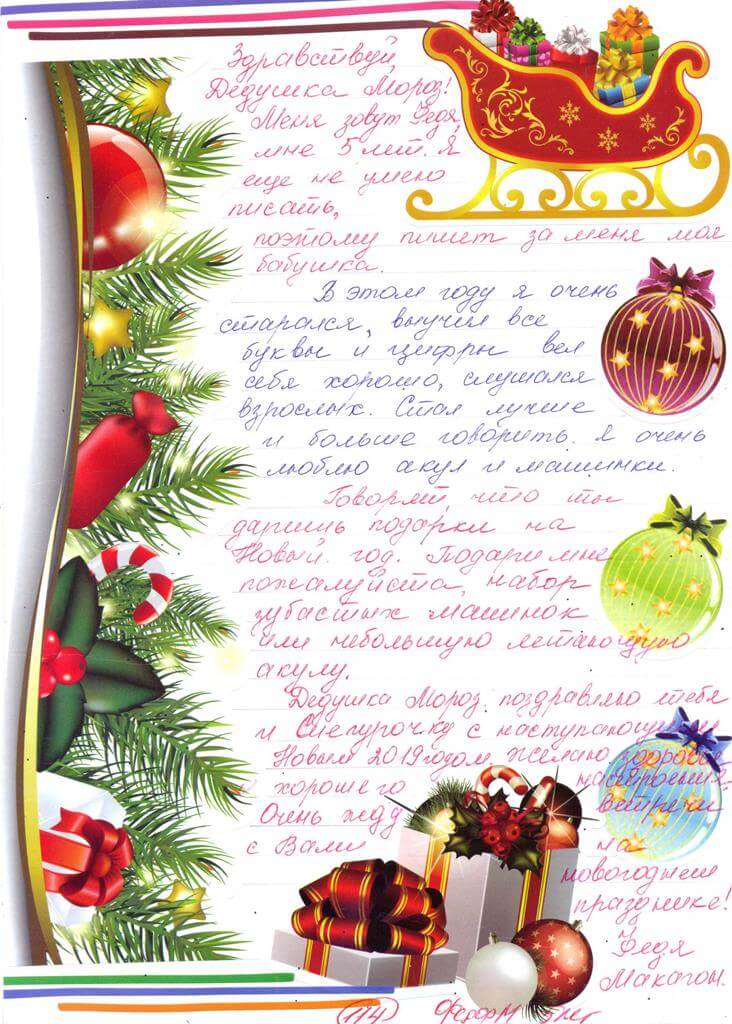 Здравствуй,
Дедушка Мороз!
Меня зовут Федя,
мне 5 лет. Я
еще не умею
писать,
поэтому пишет за меня моя
бабушка.
В этом году я очень
старался, выучил все
буквы и цифры вел
себя хорошо, слушался
взрослых. Стал лучше
и больше говорить. Я очень
люблю акул и машинки.
Говорят, что ты
даришь подарки на
Новый год. Подари мне
пожалуйста, набор
зубастых машинок
или небольшую летающую
акулу.
Дедушка Мороз поздравляю тебя
и Снегурочку с наступающим
Новым 2019 годом. Желаю здоровья
и хорошего настроения.
Очень жду встречи
с Вами на
новогоднем
празднике!
Федя
Макагон.
(114) 5 лет